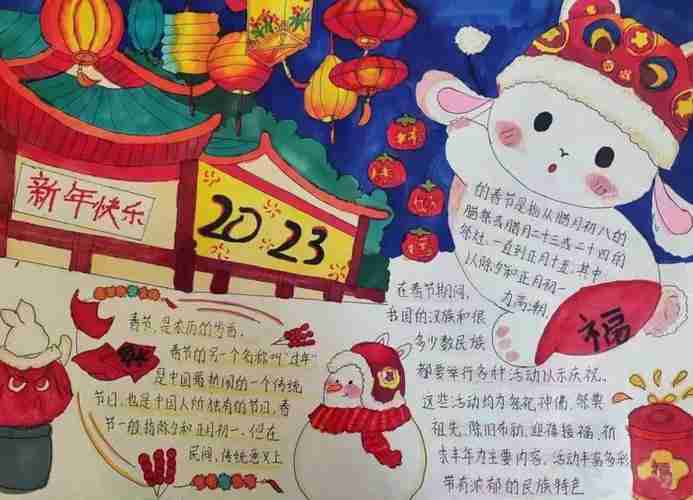 新年快乐
2023
春节,是农历的岁首,
春节的另一个名称叫"过年"
是中国最热闹的一个传统
节日,也是中国人所独有的节日,春
节一般指除夕和正月初一,但在
民间,传统意义上
的春节是指从腊月初八的
腊祭或腊月二十三或二十四的
祭灶,一直到正月十五,其中
以除夕和正月初一
为高潮,
在春节期间,
我国的汉族和很
多少数民族
都要举行各种活动以示庆祝。
这些活动均为祭祀神佛、祭奠
祖先、除旧布新、迎禧接福、祈
求丰年为主要内容。活动丰富多彩
带有浓郁的民族特色
福
福